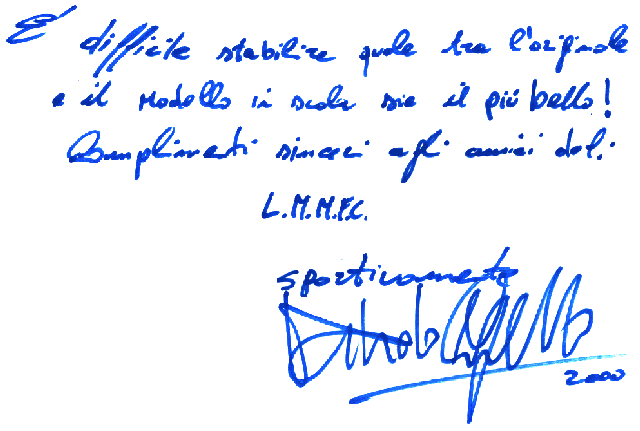 E' difficile stabilire quale tra l'originale
e il modello in scala sia il più bello!
Complimenti sinceri agli amici del:
L.M.M.F.C.
sportivamente
2000